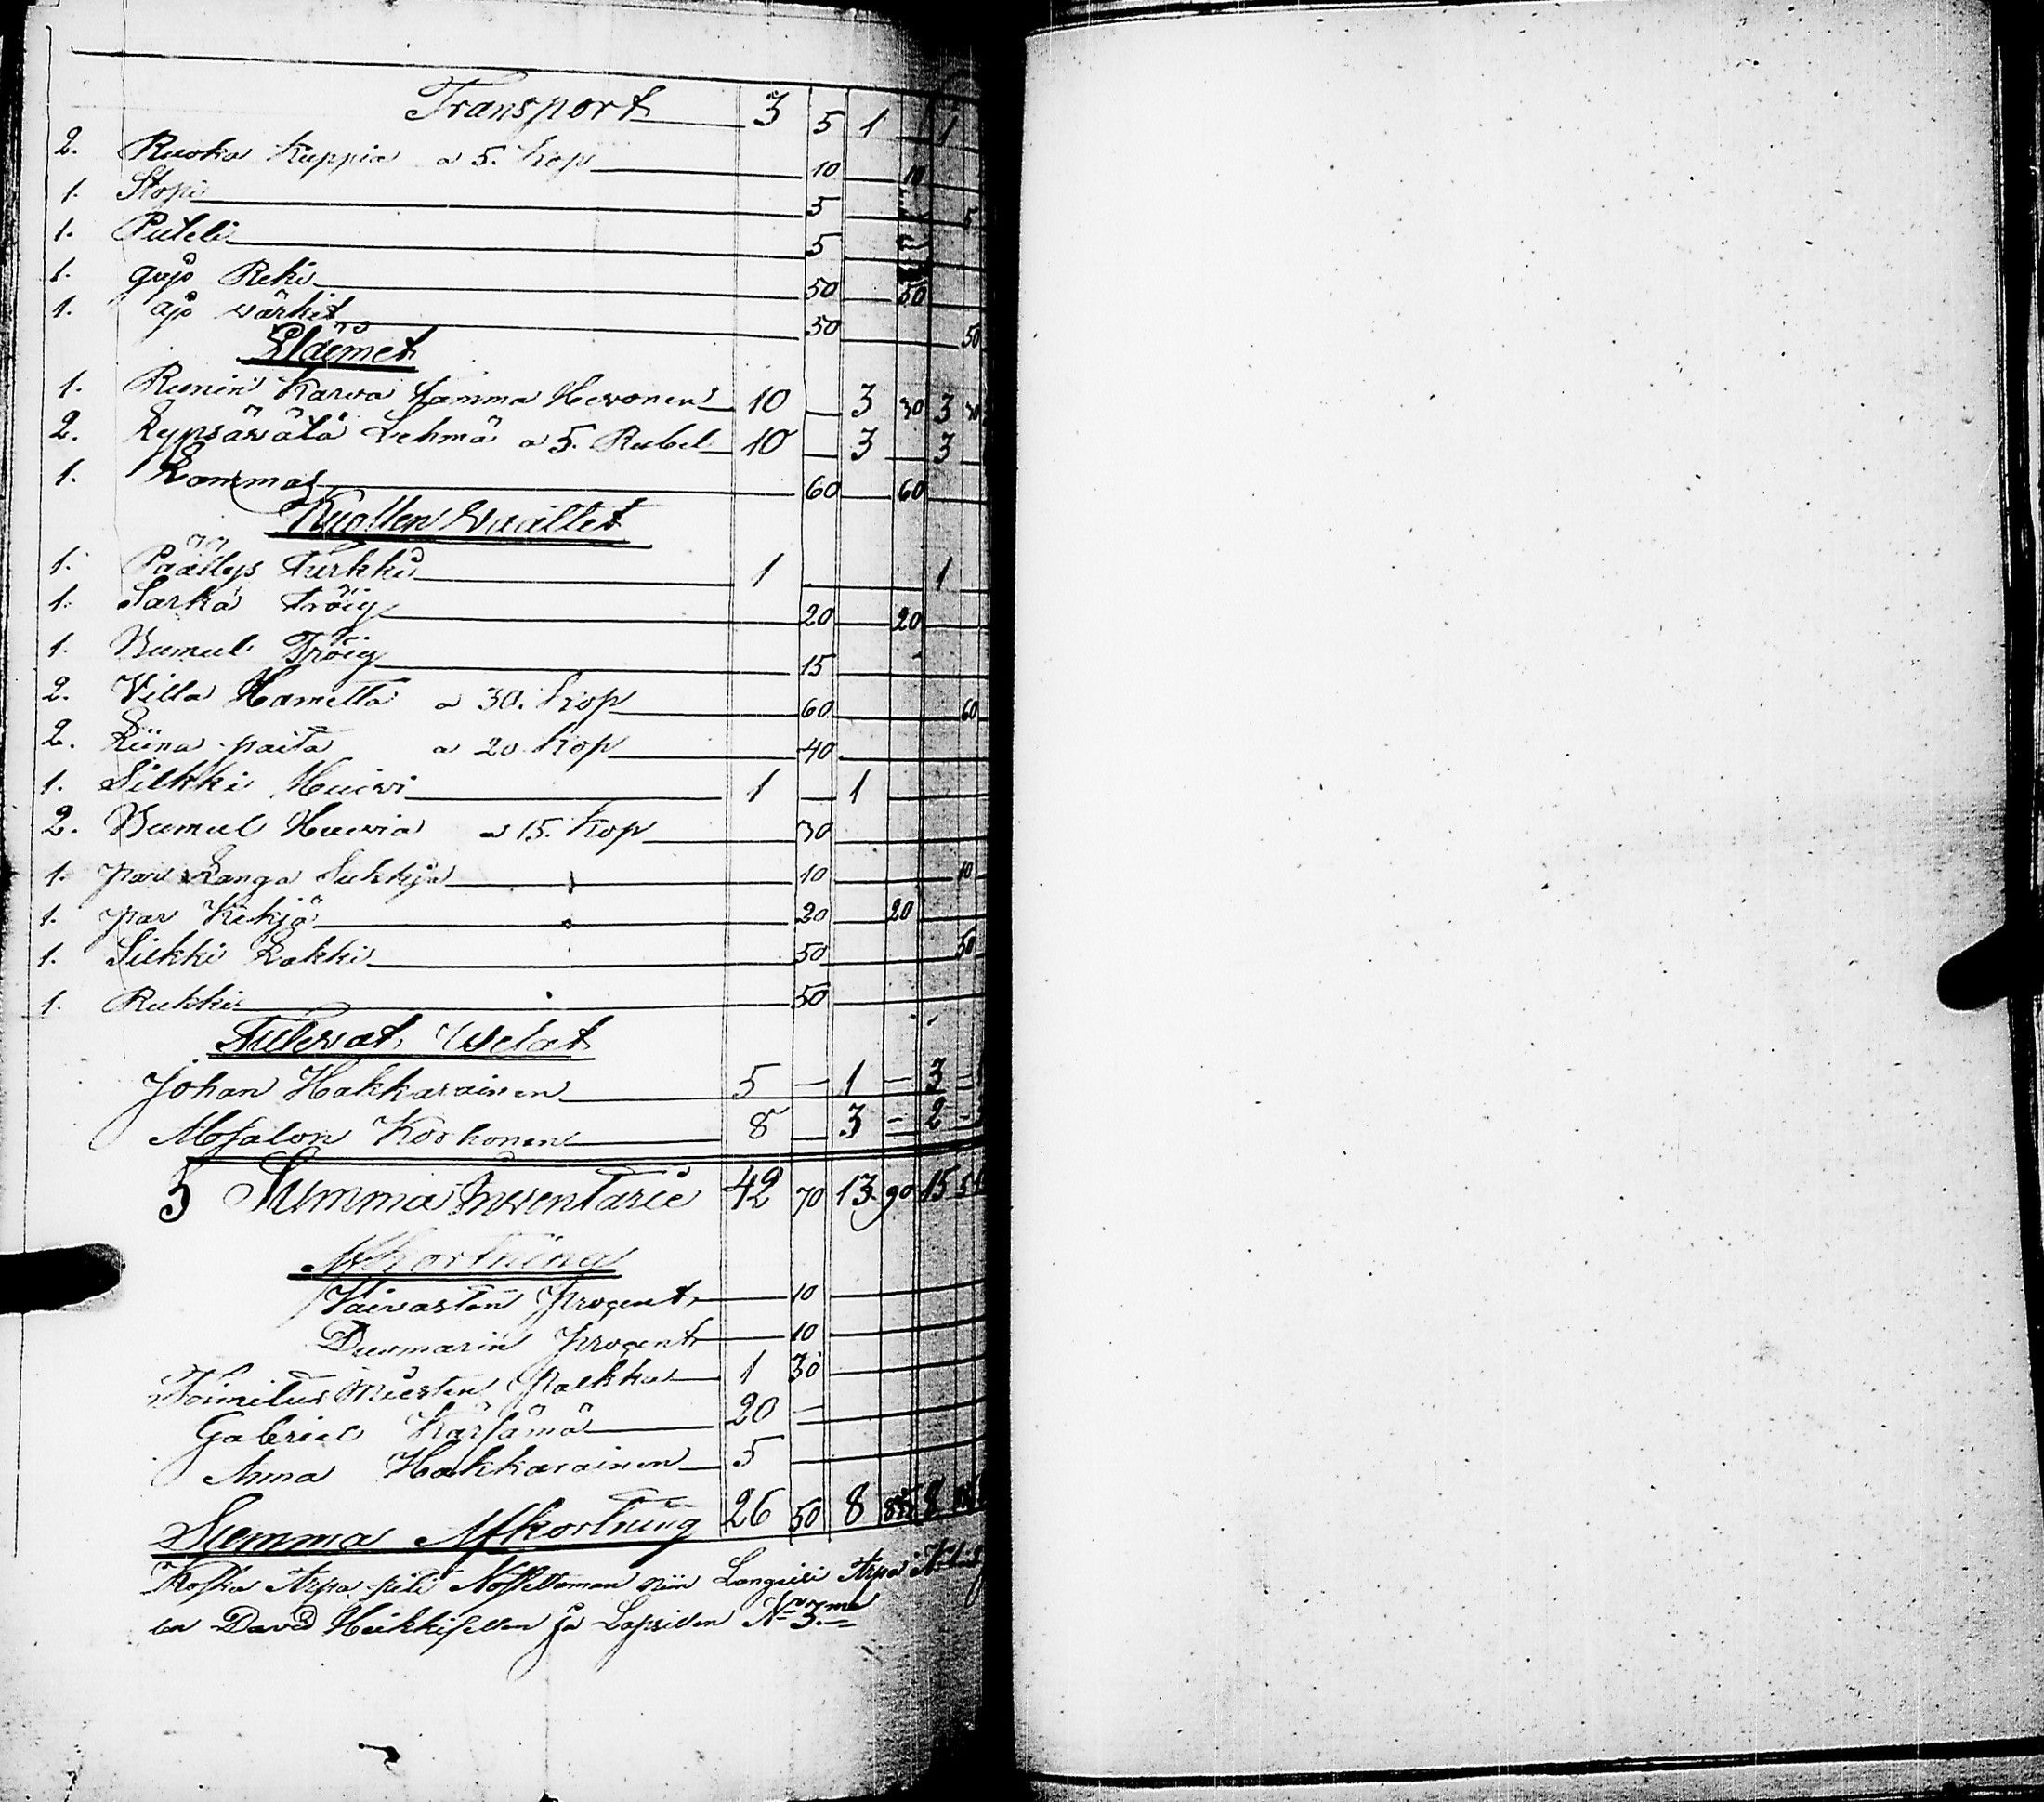 Transport 3 5 1 1
2. Ruoka Kuppia a 5. Kop 10 10
1. Stopi 5 5
1. Puteli 5
1. Reki 50 50
1. ajo wärkit 50 50
Eläimet
1. Runin Karwa Tamma Hewonen 10 3 30 3 30
2. Lypsäwätä Lehmä a 5. Rubel 10 3 3
1. Lammas 60 60
Kuollen Waattet
1. Päällys Turkki 1 1
1. Sarka Tröig 20 20
1. Bumul Tröig 15
2. Villa Hametta a 30. Kop 60 60
2. Liina paita a 20 Kop 40
1. Silkki Huiwi 1 1
2. Bumul Huwia a 15. Kop 30
1. par Langa Sukkja 10 10
1. par Kekjä 20 20
1. Silkki Lakki 50 50
1. Rukki 50
Tulewat Welat
Johan Hakkarainen 5 — 1 — 3 —
Korhonen 8 — 3 — 2 —
5 Summa Inventarie 42 70 13 90 15
Afkortning
Vaivasten Procent 10
Duomarin Procent 10
Toimitus Miesten Palkka 1 30
Gabriel Kärsämä 20 —
Anna Hakkarainen 5
Summa Afkortning 26 50 8 8
Koska Arpa piti Nosettaman niin Langeisi Arpa
len David Heikkisellen ja Lapsillen No 3me